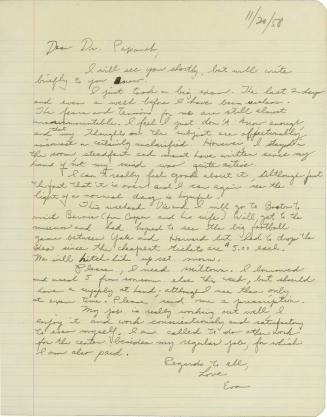 11/20/58
Dear Dr. Papanek,
I will see you shortly, but will write
briefly to you now.
I just took a big exam. The last 2 days
and even a week before I have been
The fears and tensions for me are still almost
insurmountable. I feel I just don't know enough
and that my thoughts on the subject are
However, I
the room steadfast and must have written since my
hand if not my mind was quite active.
I can't really feel good about it, although just
the fact that it is over and I can again see the
light of a normal day is hopeful.
This weekend David and I will go to Boston to
visit Bernie and his wife. Will get to the
museum and had hoped to see the big football
game between Yale and Harvard but had to drop the
idea since the cheapest tickets are $5.00 each.
We will hitch like up yet now.
Please, I need miltown. I borrowed
and used 5 from someone else this week, but should
have a supply at hand, although I use them only
at exam time. Please, send me a prescription.
My job is really working out well. I
enjoy it and work conscientiously and satisfactory
to also myself. I am called to do other work
for the center besides my regular job, for which
I am also paid.
Regards to all,
Love
Eva